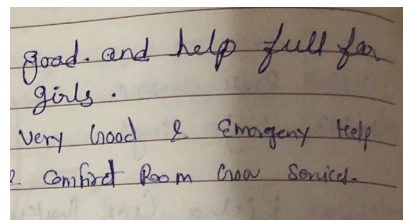 good. and help full for
girls.
Very Good & Emergeny Help
& Comfirt Room Service.